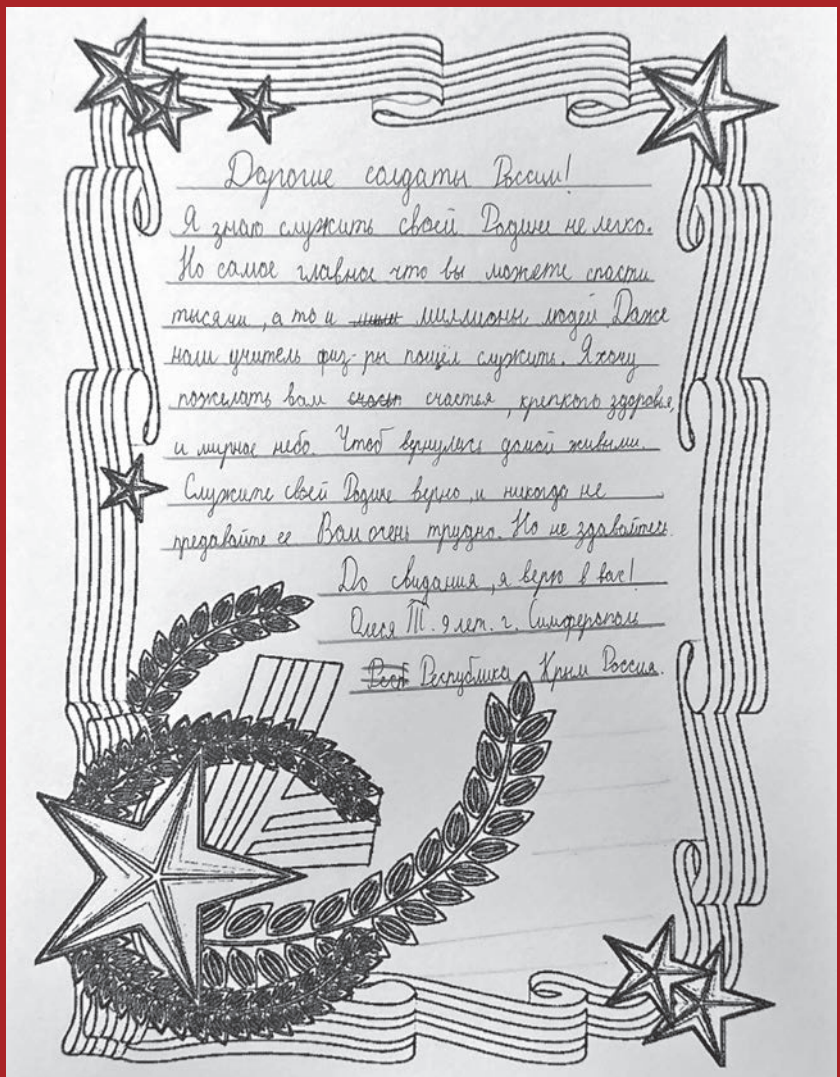 Дорогие солдаты России!
Я знаю служить своей Родине не легко.
Но самое главное что вы можете спасти
тысячи, а то и миллионы людей. Даже
наш учитель физ-ры пошёл служить. Я хочу
пожелать вам счастья, крепкого здоровья,
и мирное небо. Чтоб вернулись домой живыми.
Служите своей Родине верно, и никогда не
предавайте ее. Вам очень трудно. Но не здавайтесь.
До свидания, я верю в вас!
Олеся Т. 9 лет. г. Симферополь
Республика Крым Россия.